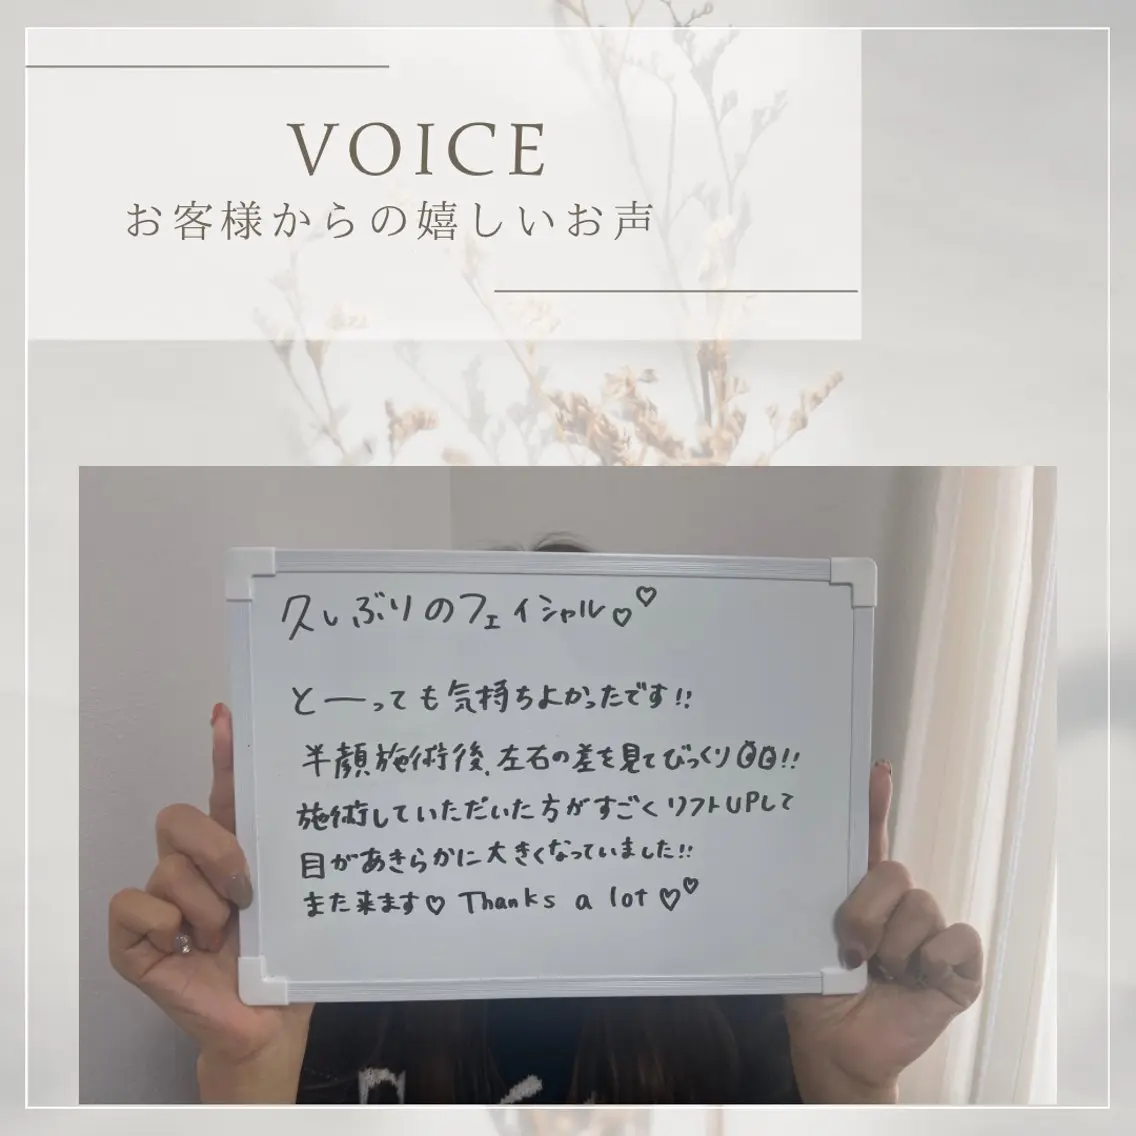 VOICE
お客様からの嬉しいお声
久しぶりのフェイシャル♡♡
とーっても気持ちよかったです!!
半顔施術後、左右の差を見てびっくり!!
施術していただいた方がすごくリフトUPして
目があきらかに大きくなっていました!!
また来ます♡ Thanks a lot ♡♡